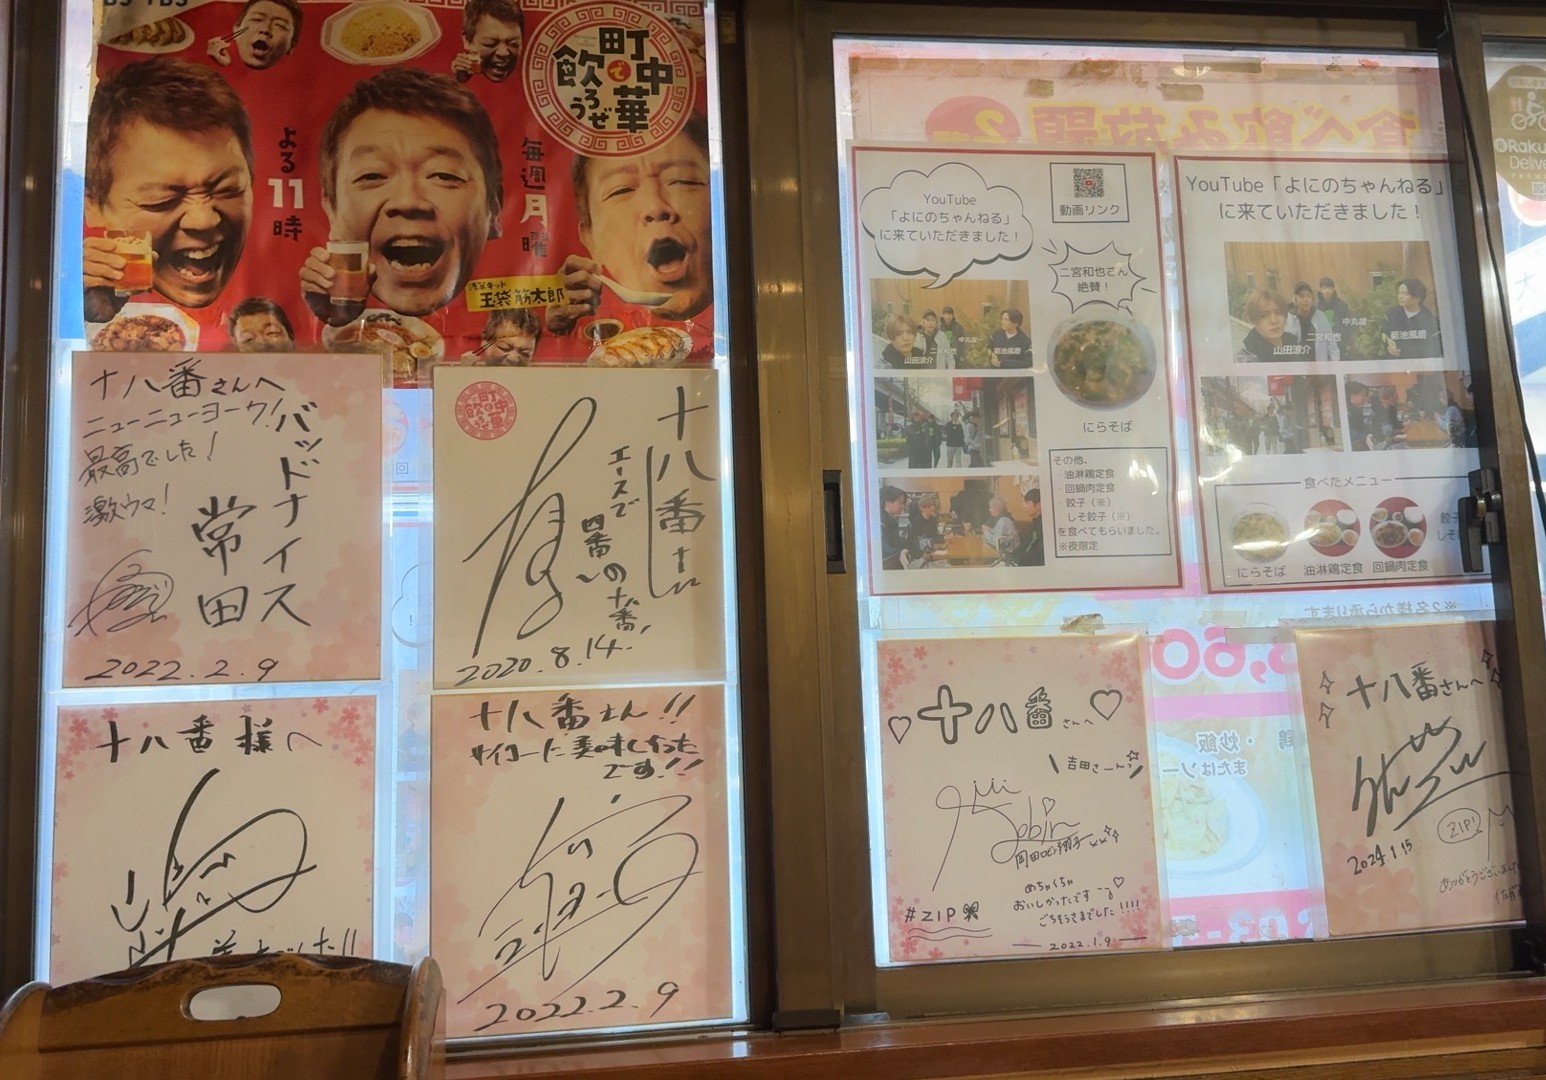 BS-TBS
町中華
で
飲ろうぜ
よる
11
時
毎週月曜
浅草キッド
玉袋筋太郎
十八番さんへ
ニューニューヨーク!
最高でした!
激ウマ!
バッドナイス
常田
2022.2.9
町中華
で
飲ろうぜ
十八番さん
エースで
四番〜
の十番!
2020.8.14.
十八番様へ
十八番さん!!
サイコーに美味しかった
です!!
2022.2.9
食べ飲み放題
YouTube
「よにのちゃんねる」
に来ていただきました!
動画リンク
二宮和也さん
絶賛!
山田涼介
二宮和也
中丸雄
菊池風磨
にらそば
その他、
油淋鶏定食
回鍋肉定食
餃子(※)
しそ餃子(※)
を食べてもらいました。
※夜限定
YouTube「よにのちゃんねる」
に来ていただきました!
山田涼介
二宮和也
中丸雄
菊池風磨
食べたメニュー
にらそば
油淋鶏定食
回鍋肉定食
餃子
しそ
Raku
Delive
※2名様から承ります
・炒飯
またはソー
十八番さんへ
\吉田さーん/
Robin
#ZIP
めちゃくちゃ
おいしかったです
ごちそうさまでした!!!!
2022.1.9
十八番さんへ
ZIP!
2024.1.15
ありがとうございました